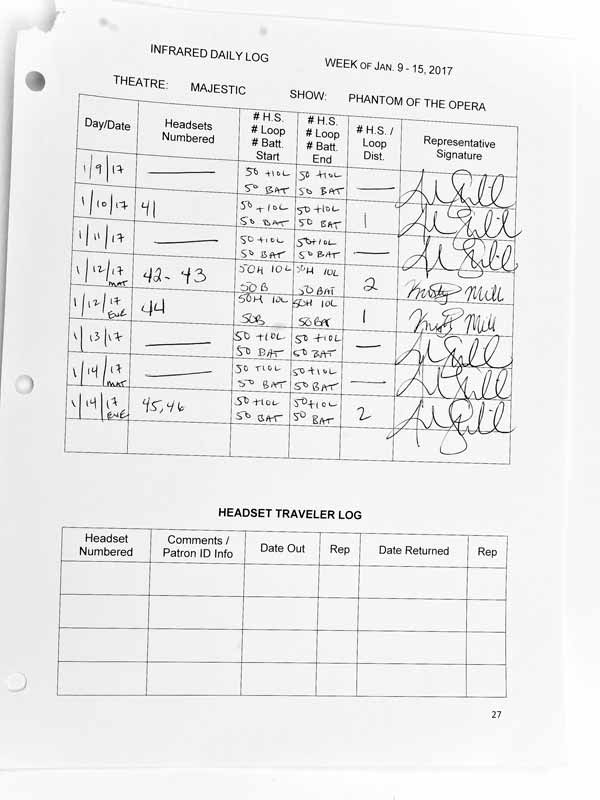 INFRARED DAILY LOG WEEK OF JAN. 9 - 15, 2017
THEATRE: MAJESTIC SHOW: PHANTOM OF THE OPERA
Day/Date Headsets Numbered # H.S. # Loop # Batt. Start # H.S. # Loop # Batt. End # H.S. / Loop Dist. Representative Signature
1/9/17 — 50 +10L 50 +10L —
50 BAT 50 BAT
1/10/17 41 50 +10L 50 +10L 1
50 BAT 50 BAT
1/11/17 — 50 +10L 50+10L —
50 BAT 50 BAT
1/12/17 MAT 42-43 50H 10L 50H 10L 2
50B 50BAT
1/12/17 EVE 44 50H 10L 50H 10L 1
50B 50BAT
1/13/17 — 50 +10L 50 +10L —
50 BAT 50 BAT
1/14/17 MAT — 50 +10L 50+10L —
50 BAT 50 BAT
1/14/17 EVE 45,46 50 +10L 50+10L 2
50 BAT 50 BAT
HEADSET TRAVELER LOG
Headset Numbered Comments / Patron ID Info Date Out Rep Date Returned Rep
27